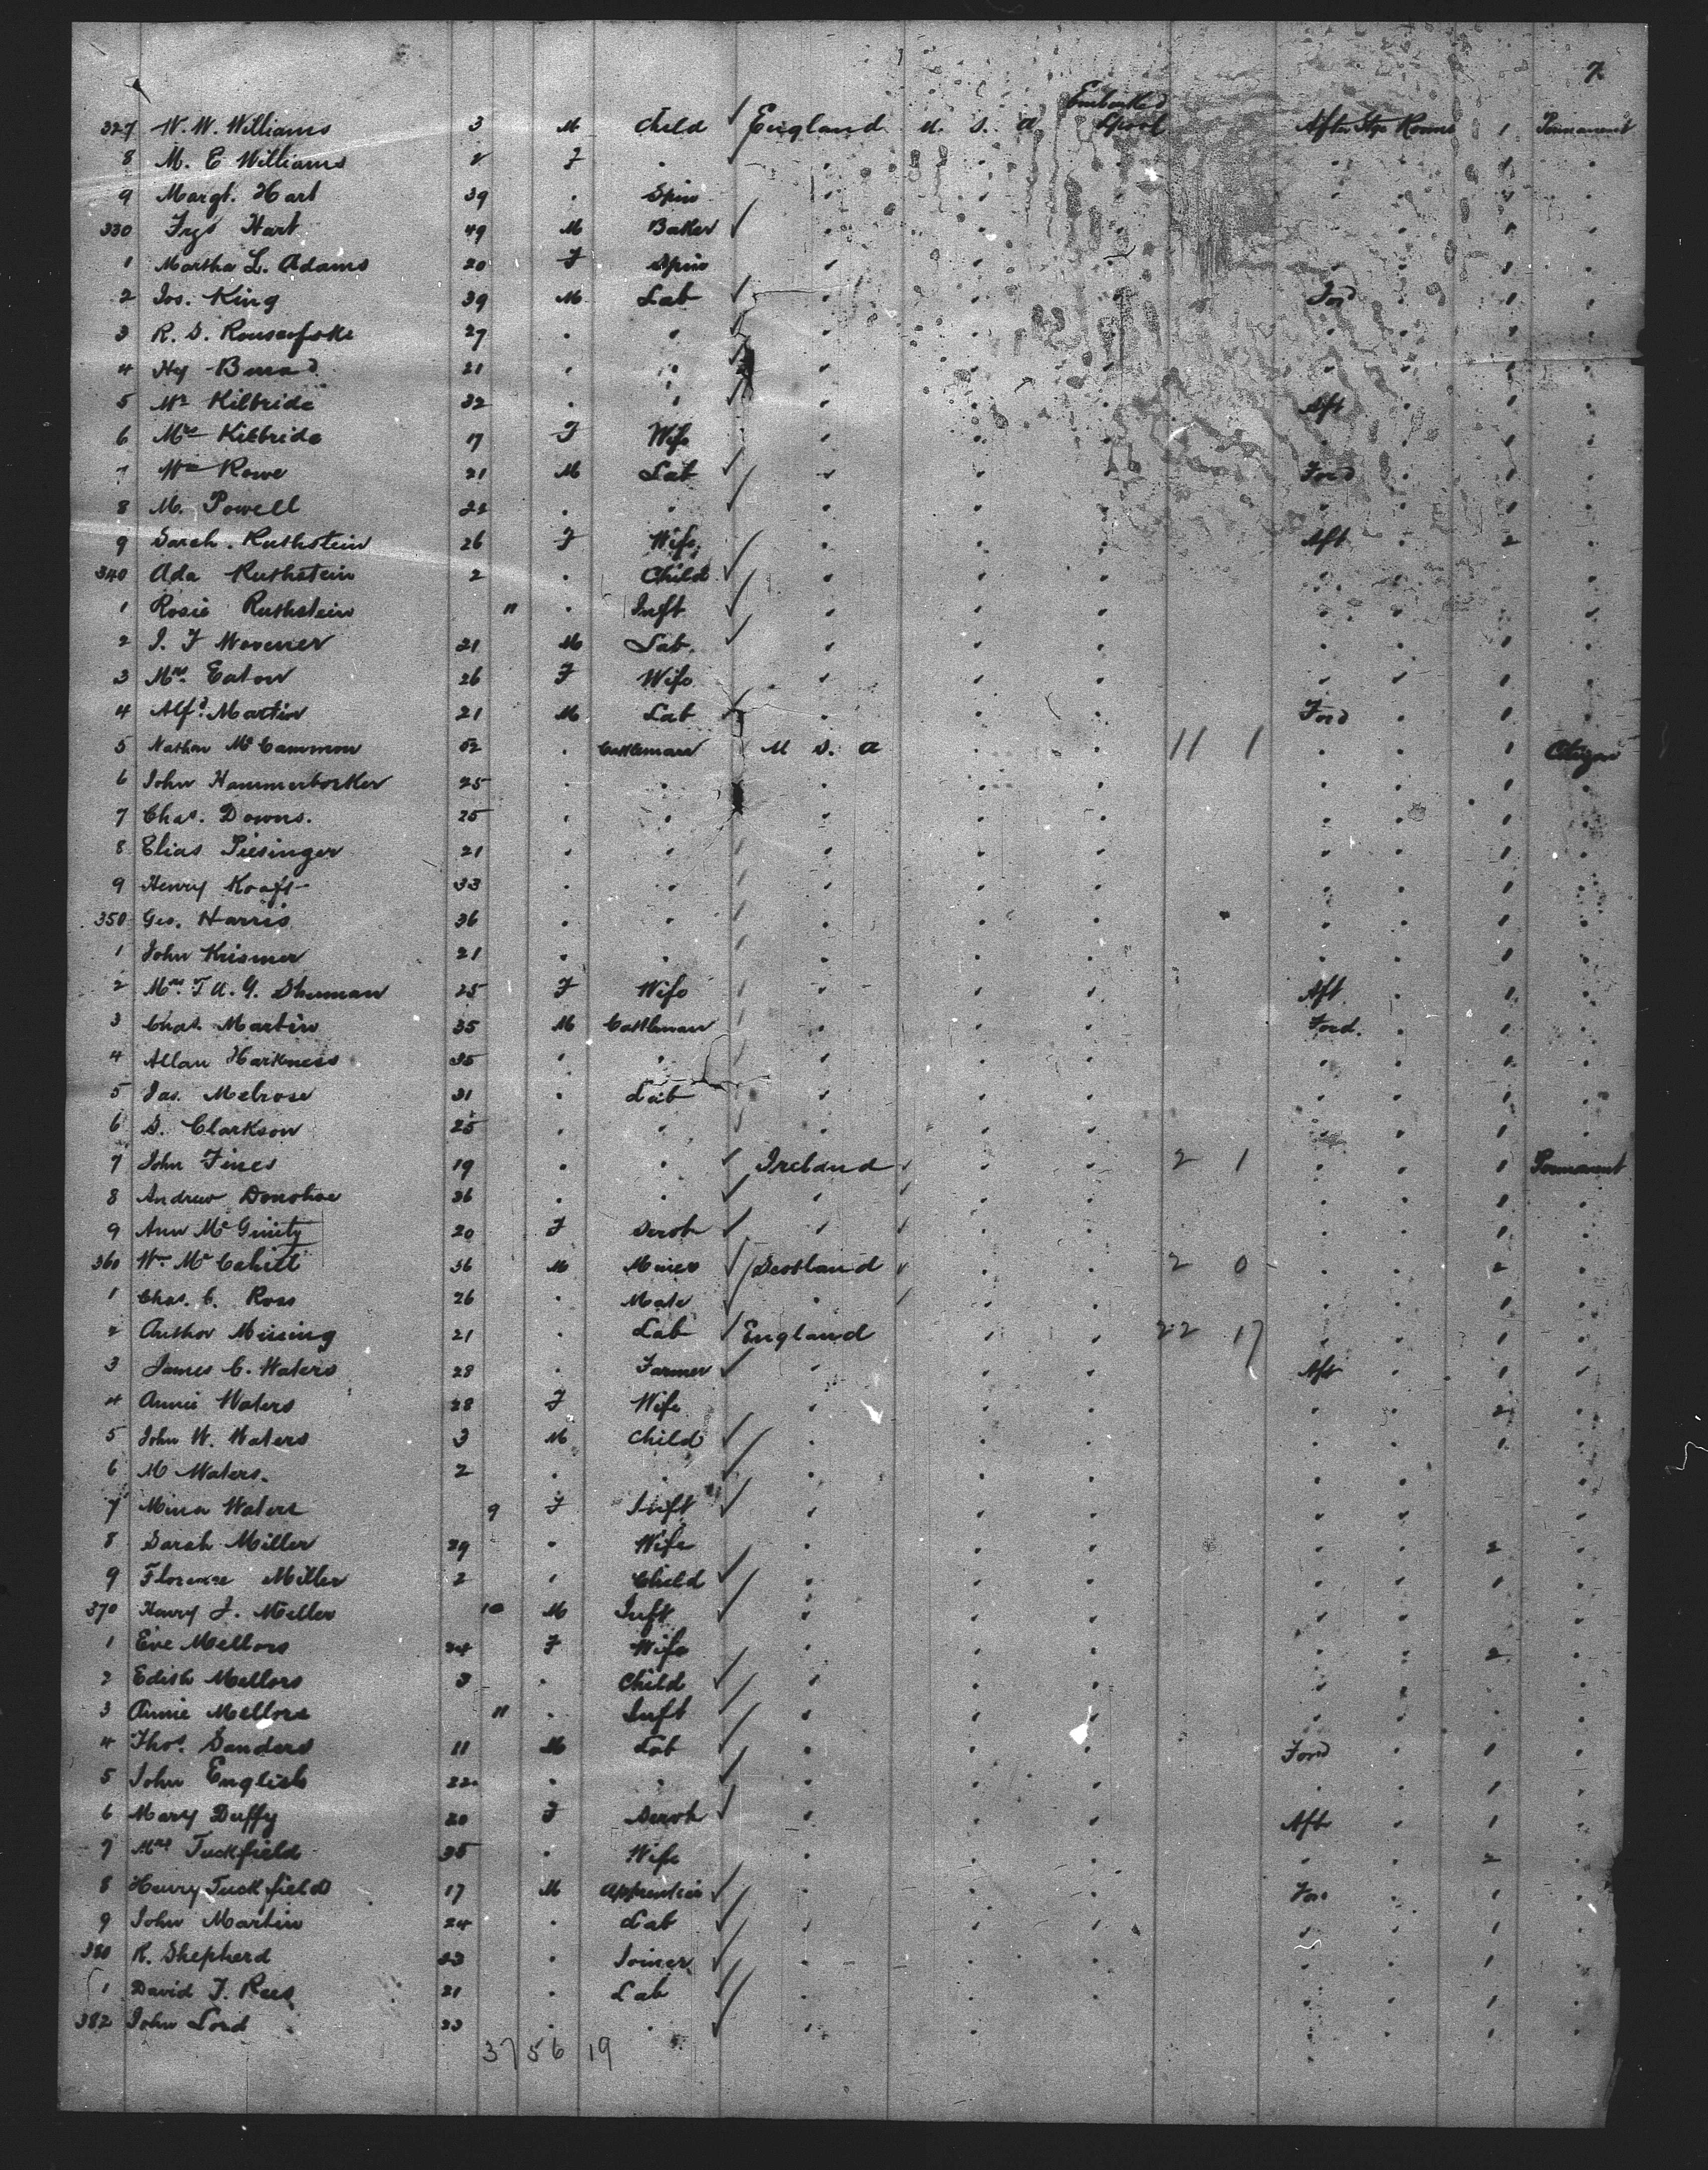 7
Embarked
327 W. W. Williams 3 M Child ✓ England U. S. a L'pool After Stge Rooms 1 Permanent
8 M. E Williams F " ✓ " " " " " 1 "
9 Margt. Hart 39 " Spin " " " " " 1 "
330 Hart 49 M Baker ✓ " " " " " 1 "
1 Martha L. Adams 20 F Spin " " " " " 1 "
2 Jos. King 39 M Lab ✓ " " " Ford " 1 "
3 R. S. 27 " " ✓ " " " " " 1 "
4 Hy 21 " " ✓ " " " " " 1 "
5 Mr Kilbride 32 " " ✓ " " " Aft " 1 "
6 Mrs Kilbride 17 F Wife " " " " " 1 "
7 Wm Rowe 21 M Lab ✓ " " " Ford " 1 "
8 M. Powell 22 " " ✓ " " " " " 1 "
9 Sarah Ruthstein 26 F Wife ✓ " " " Aft " 2 "
340 Ada Ruthstein 2 " Child ✓ " " " " " "
1 Rosie Ruthstein 11 " Inft ✓ " " " " " "
2 J. F 21 M Lab ✓ " " " " " 1 "
3 Mrs. Eaton 26 F Wife " " " " " 1 "
4 Alfd. Martin 21 M Lab ✓ " " " Ford " 1 "
5 Nathan McCammon 52 " Cattleman U S. a " " 11 1 " " 1 Citizen
6 John Hammerborker 25 " " " " " " " 1 "
7 Chas. Downs. 25 " " " " " " " 1 "
8 Elias Piesinger 21 " " " " " " " 1 "
9 Henry 33 " " " " " " " 1 "
350 Geo. Harris 36 " " " " " " " 1 "
1 John 21 " " " " " " " 1 "
2 Mrs. T. A. G. Shuman 25 F Wife " " " Aft " 1 "
3 Chas. Martin 35 M Cattleman " " " Ford. " 1 "
4 Allan Harkness 35 " " " " " " " 1 "
5 Jas. Melrose 31 " Lab " " " " " 1 "
6 S. Clarkson 25 " " " " " " " 1 "
7 John Fines 19 " " ✓ Ireland " " 2 1 " " 1 Permanent
8 Andrew Donohoe 36 " " ✓ " " " " " 1 "
9 Ann McGinity 20 F Servt ✓ " " " " " 1 "
360 Wm McCahill 36 M Miner ✓ Scotland " " 2 0 " " 2 "
1 Chas. C. Ross 26 " Mate ✓ " " " " " 1 "
2 Author Missing 21 " Lab ✓ England " " 22 17 " " 1 "
3 James C. Waters 28 " Farmer ✓ " " " Aft " 1 "
4 Annie Waters 28 F Wife " " " " " 2 "
5 John W. Waters 3 M Child ✓ " " " " " 1 "
6 M Waters. 2 " " ✓ " " " " " "
7 Mina Waters 9 F Inft ✓ " " " " " "
8 Sarah Miller 29 " Wife " " " " " 2 "
9 Florence Miller 2 " Child ✓ " " " " " 1 "
370 Henry J. Miller 10 M Inft ✓ " " " " " "
1 Eve Mellors 24 F Wife " " " " " 2 "
2 Edith Mellors 3 " Child ✓ " " " " " "
3 Annie Mellors 11 " Inft ✓ " " " " " "
4 Thos. Sanders 11 M Lab ✓ " " " Ford " 1 "
5 John English 22 " " ✓ " " " " " 1 "
6 Mary Duffy 20 F Servt ✓ " " " Aft " 1 "
7 Mrs Tuckfield 35 " Wife " " " " " 2 "
8 Henry Tuckfield 17 M Apprentice ✓ " " " For " 1 "
9 John Martin 24 " Lab ✓ " " " " " 1 "
380 R. Shepherd 23 " Joiner ✓ " " " " " 1 "
1 David J. Rees 21 " Lab ✓ " " " " " 1 "
382 John Lord 23 " " ✓ " " " " " 1 "
37 56 19